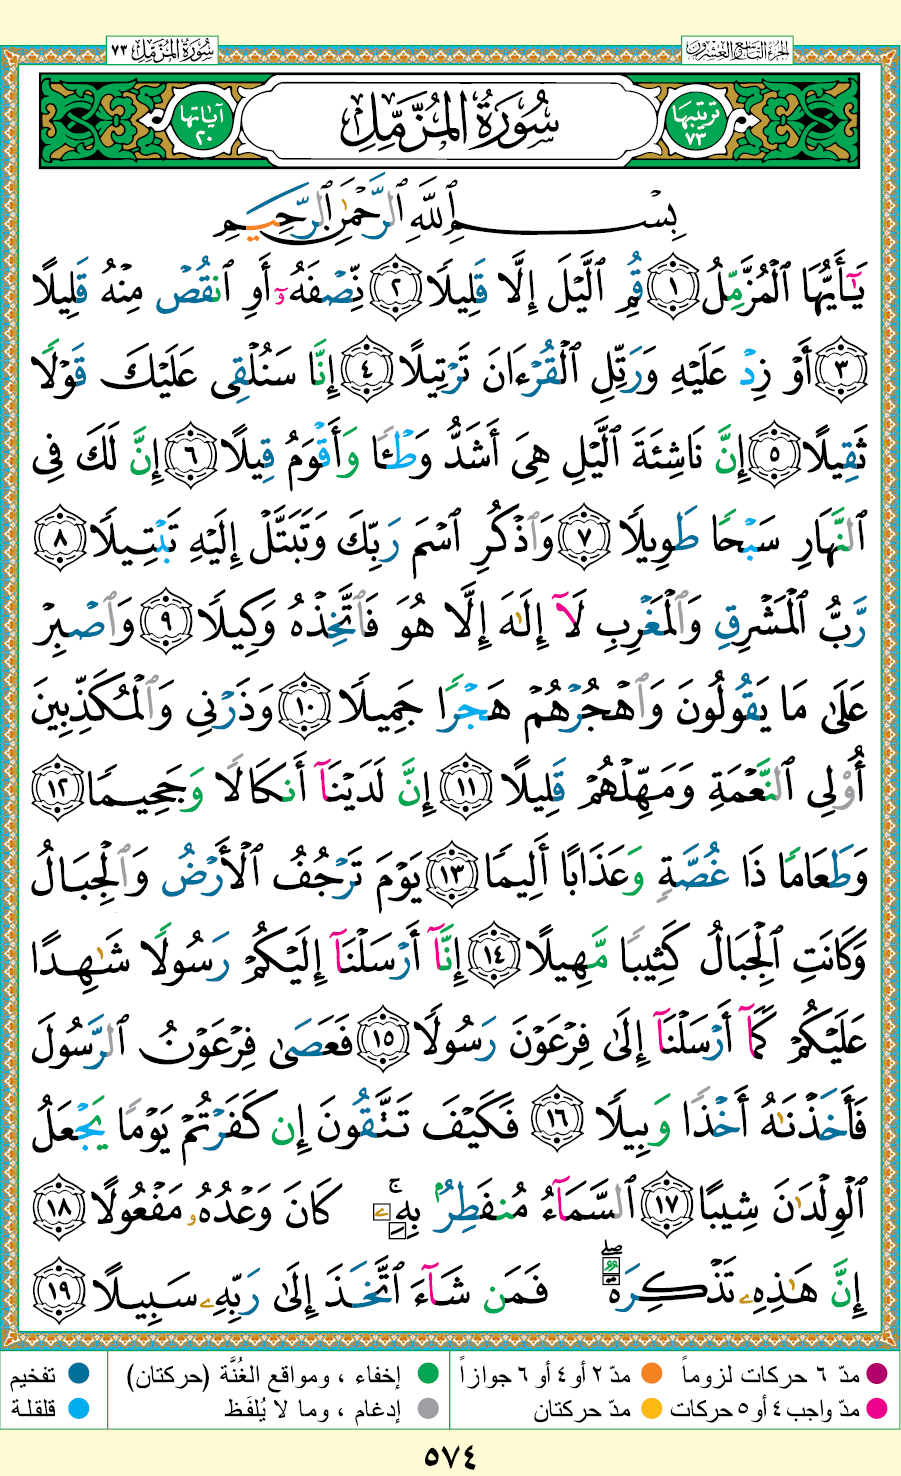 الجزء التاسع والعشرون
سُورَةُ المُزَّمِّل ٧٣
ترتيبها ٧٣
سُورَةُ الْمُزَّمِّلِ
آيَاتها ٢٠
بِسْمِ ٱللَّهِ ٱلرَّحْمَٰنِ ٱلرَّحِيمِ
يَٰٓأَيُّهَا ٱلْمُزَّمِّلُ ١ قُمِ ٱلَّيْلَ إِلَّا قَلِيلًا ٢ نِّصْفَهُۥٓ أَوِ ٱنقُصْ مِنْهُ قَلِيلًا
٣ أَوْ زِدْ عَلَيْهِ وَرَتِّلِ ٱلْقُرْءَانَ تَرْتِيلًا ٤ إِنَّا سَنُلْقِى عَلَيْكَ قَوْلًا
ثَقِيلًا ٥ إِنَّ نَاشِئَةَ ٱلَّيْلِ هِىَ أَشَدُّ وَطْـًٔا وَأَقْوَمُ قِيلًا ٦ إِنَّ لَكَ فِى
ٱلنَّهَارِ سَبْحًا طَوِيلًا ٧ وَٱذْكُرِ ٱسْمَ رَبِّكَ وَتَبَتَّلْ إِلَيْهِ تَبْتِيلًا ٨
رَّبُّ ٱلْمَشْرِقِ وَٱلْمَغْرِبِ لَآ إِلَٰهَ إِلَّا هُوَ فَٱتَّخِذْهُ وَكِيلًا ٩ وَٱصْبِرْ
عَلَىٰ مَا يَقُولُونَ وَٱهْجُرْهُمْ هَجْرًا جَمِيلًا ١٠ وَذَرْنِى وَٱلْمُكَذِّبِينَ
أُو۟لِى ٱلنَّعْمَةِ وَمَهِّلْهُمْ قَلِيلًا ١١ إِنَّ لَدَيْنَآ أَنكَالًا وَجَحِيمًا ١٢
وَطَعَامًا ذَا غُصَّةٍ وَعَذَابًا أَلِيمًا ١٣ يَوْمَ تَرْجُفُ ٱلْأَرْضُ وَٱلْجِبَالُ
وَكَانَتِ ٱلْجِبَالُ كَثِيبًا مَّهِيلًا ١٤ إِنَّآ أَرْسَلْنَآ إِلَيْكُمْ رَسُولًا شَٰهِدًا
عَلَيْكُمْ كَمَآ أَرْسَلْنَآ إِلَىٰ فِرْعَوْنَ رَسُولًا ١٥ فَعَصَىٰ فِرْعَوْنُ ٱلرَّسُولَ
فَأَخَذْنَٰهُ أَخْذًا وَبِيلًا ١٦ فَكَيْفَ تَتَّقُونَ إِن كَفَرْتُمْ يَوْمًا يَجْعَلُ
ٱلْوِلْدَٰنَ شِيبًا ١٧ ٱلسَّمَآءُ مُنفَطِرٌۢ بِهِۦ ۚ كَانَ وَعْدُهُۥ مَفْعُولًا ١٨
إِنَّ هَٰذِهِۦ تَذْكِرَةٌ ۖ فَمَن شَآءَ ٱتَّخَذَ إِلَىٰ رَبِّهِۦ سَبِيلًا ١٩
مدّ ٦ حركات لزوماً
مدّ ٢ أو ٤ أو ٦ جوازاً
إخفاء ، ومواقع الغُنَّة (حركتان)
تفخيم
مدّ واجب ٤ أو ٥ حركات
مدّ حركتان
إدغام ، وما لا يُلفَظ
قلقلة
٥٧٤